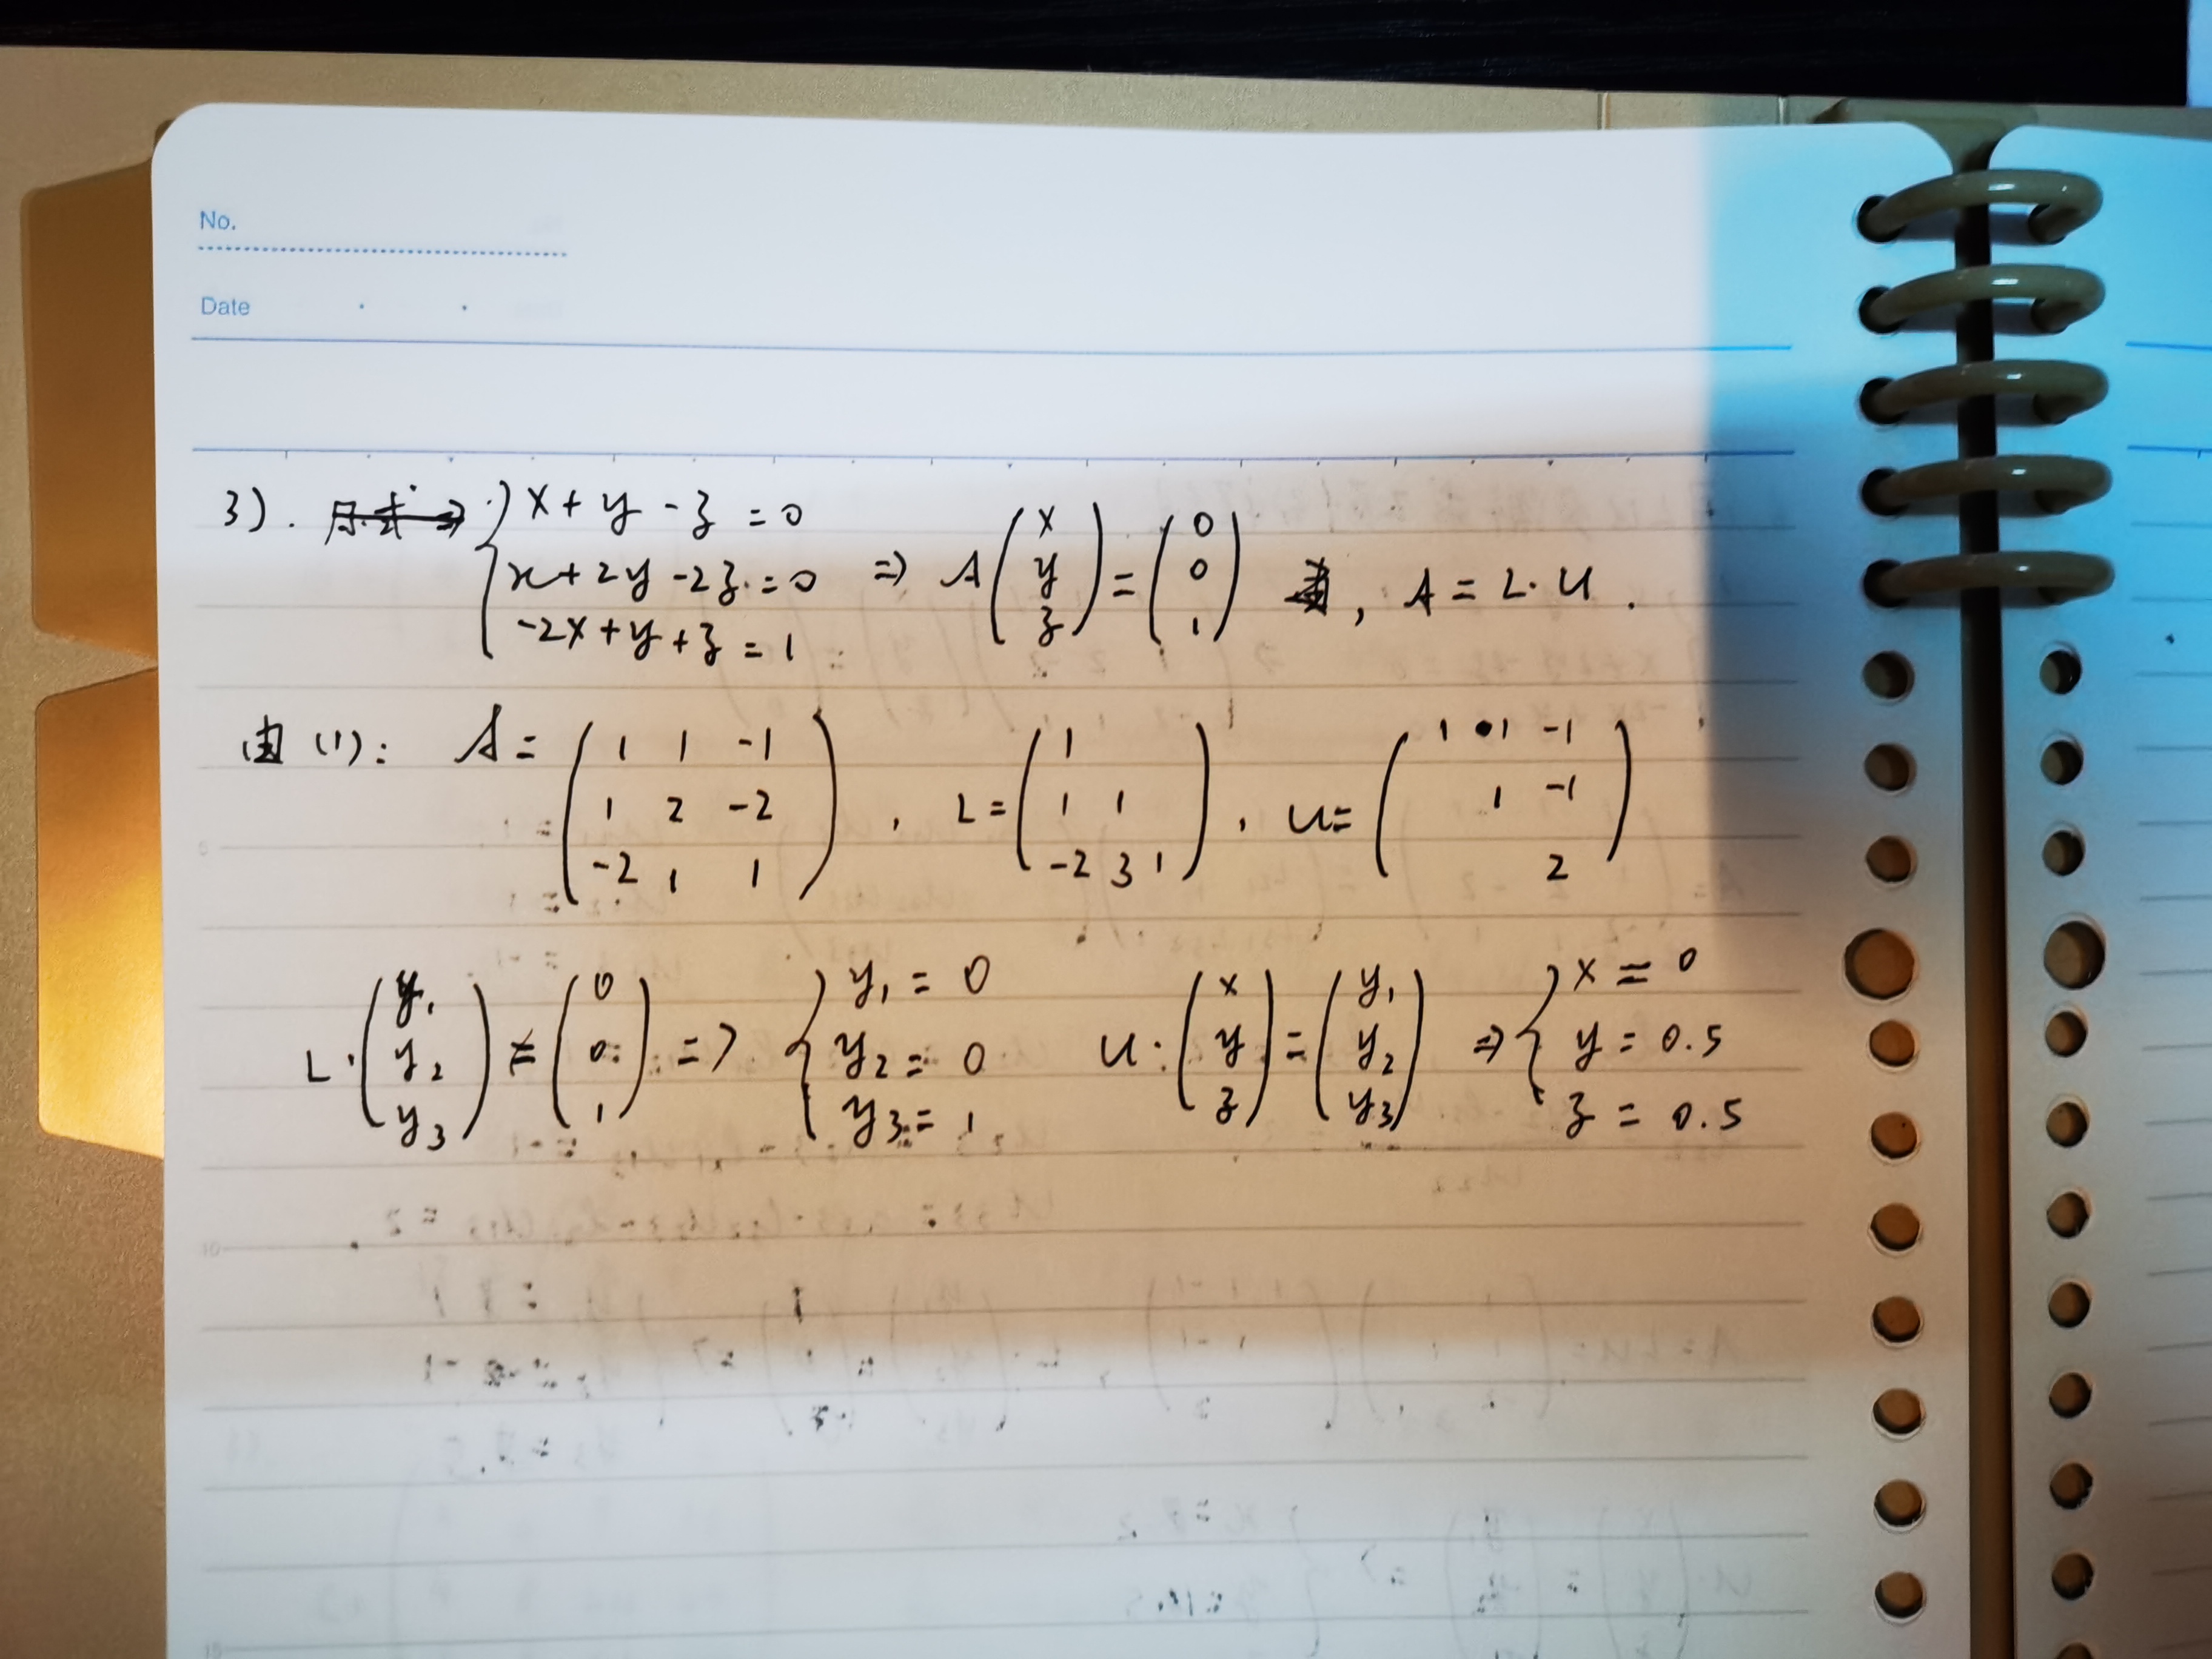 No.
Date
3). { x + y - z = 0
x + 2y - 2z = 0 ⇒ A (x y z) = (0 0 1) , A = L·U.
-2x + y + z = 1
由 (1): A = (1 1 -1
1 2 -2
-2 1 1) , L = (1
1 1
-2 3 1) , U = (1 1 -1
1 -1
2)
L·(y₁ y₂ y₃) = (0 0 1) => { y₁ = 0
y₂ = 0
y₃ = 1
U·(x y z) = (y₁ y₂ y₃) ⇒ { x = 0
y = 0.5
z = 0.5
5
10
15